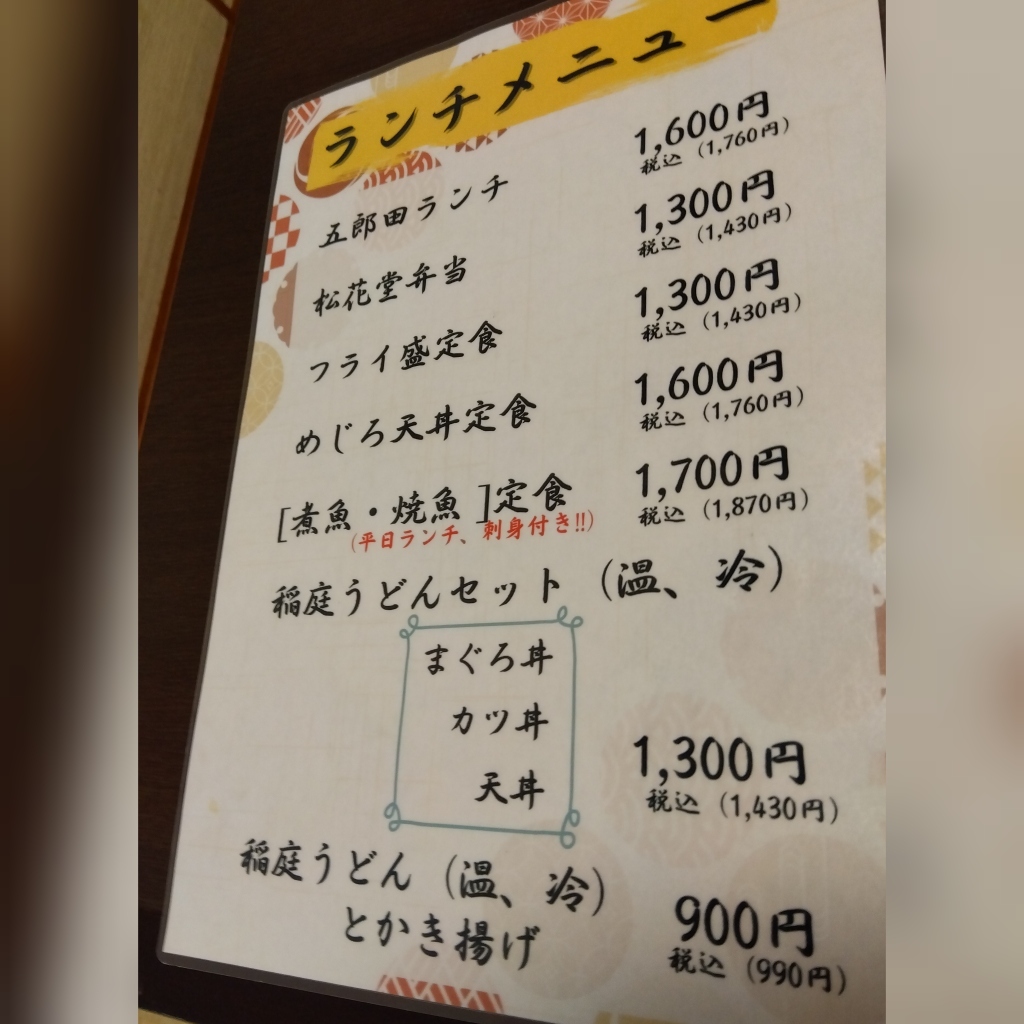 ランチメニュー
五郎田ランチ 1,600円
税込（1,760円）
松花堂弁当 1,300円
税込（1,430円）
フライ盛定食 1,300円
税込（1,430円）
めじろ天丼定食 1,600円
税込（1,760円）
[煮魚・焼魚]定食 1,700円
（平日ランチ、刺身付き!!） 税込（1,870円）
稲庭うどんセット（温、冷）
まぐろ丼
カツ丼
天丼 1,300円
税込（1,430円）
稲庭うどん（温、冷）
とかき揚げ 900円
税込（990円）